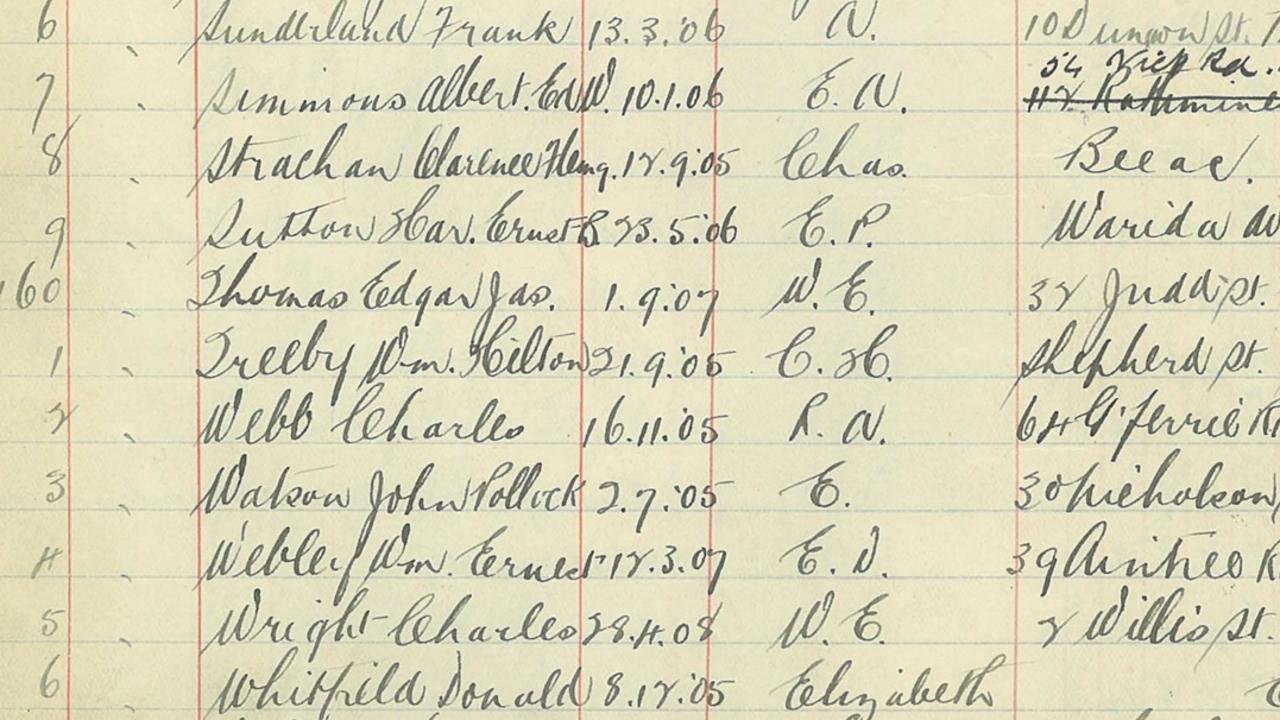 6 Sunderland Frank 13.3.'06 N. 10 Dunoon St.
54 Vict Rd.
7 Simmons Albert. Edw. 10.1.06 E. N. 112
8 Strachan Clarence Heny. 12.9.'05 Chas. Beeac.
9 Sutton Har. Ernest B. 23.5.'06 E. P. Warida Av
160 Thomas Edgar Jas. 1.9.'07 W. E. 32 Judd St.
1 Treeby Wm. Hilton 21.9.'05 C. H. Shepherd St.
2 Webb Charles 16.11.'05 R. N. 64 Glferrie R
3 Watson John Pollock 2.7.'05 E. 30 Nicholson
4 Webley Wm. Ernest 12.3.07 E. V. 39 Aintree R
5 Wright Charles 28.4.08 W. E. 2 Willis St.
6 Whitfield Donald 8.12.'05 Elizabeth